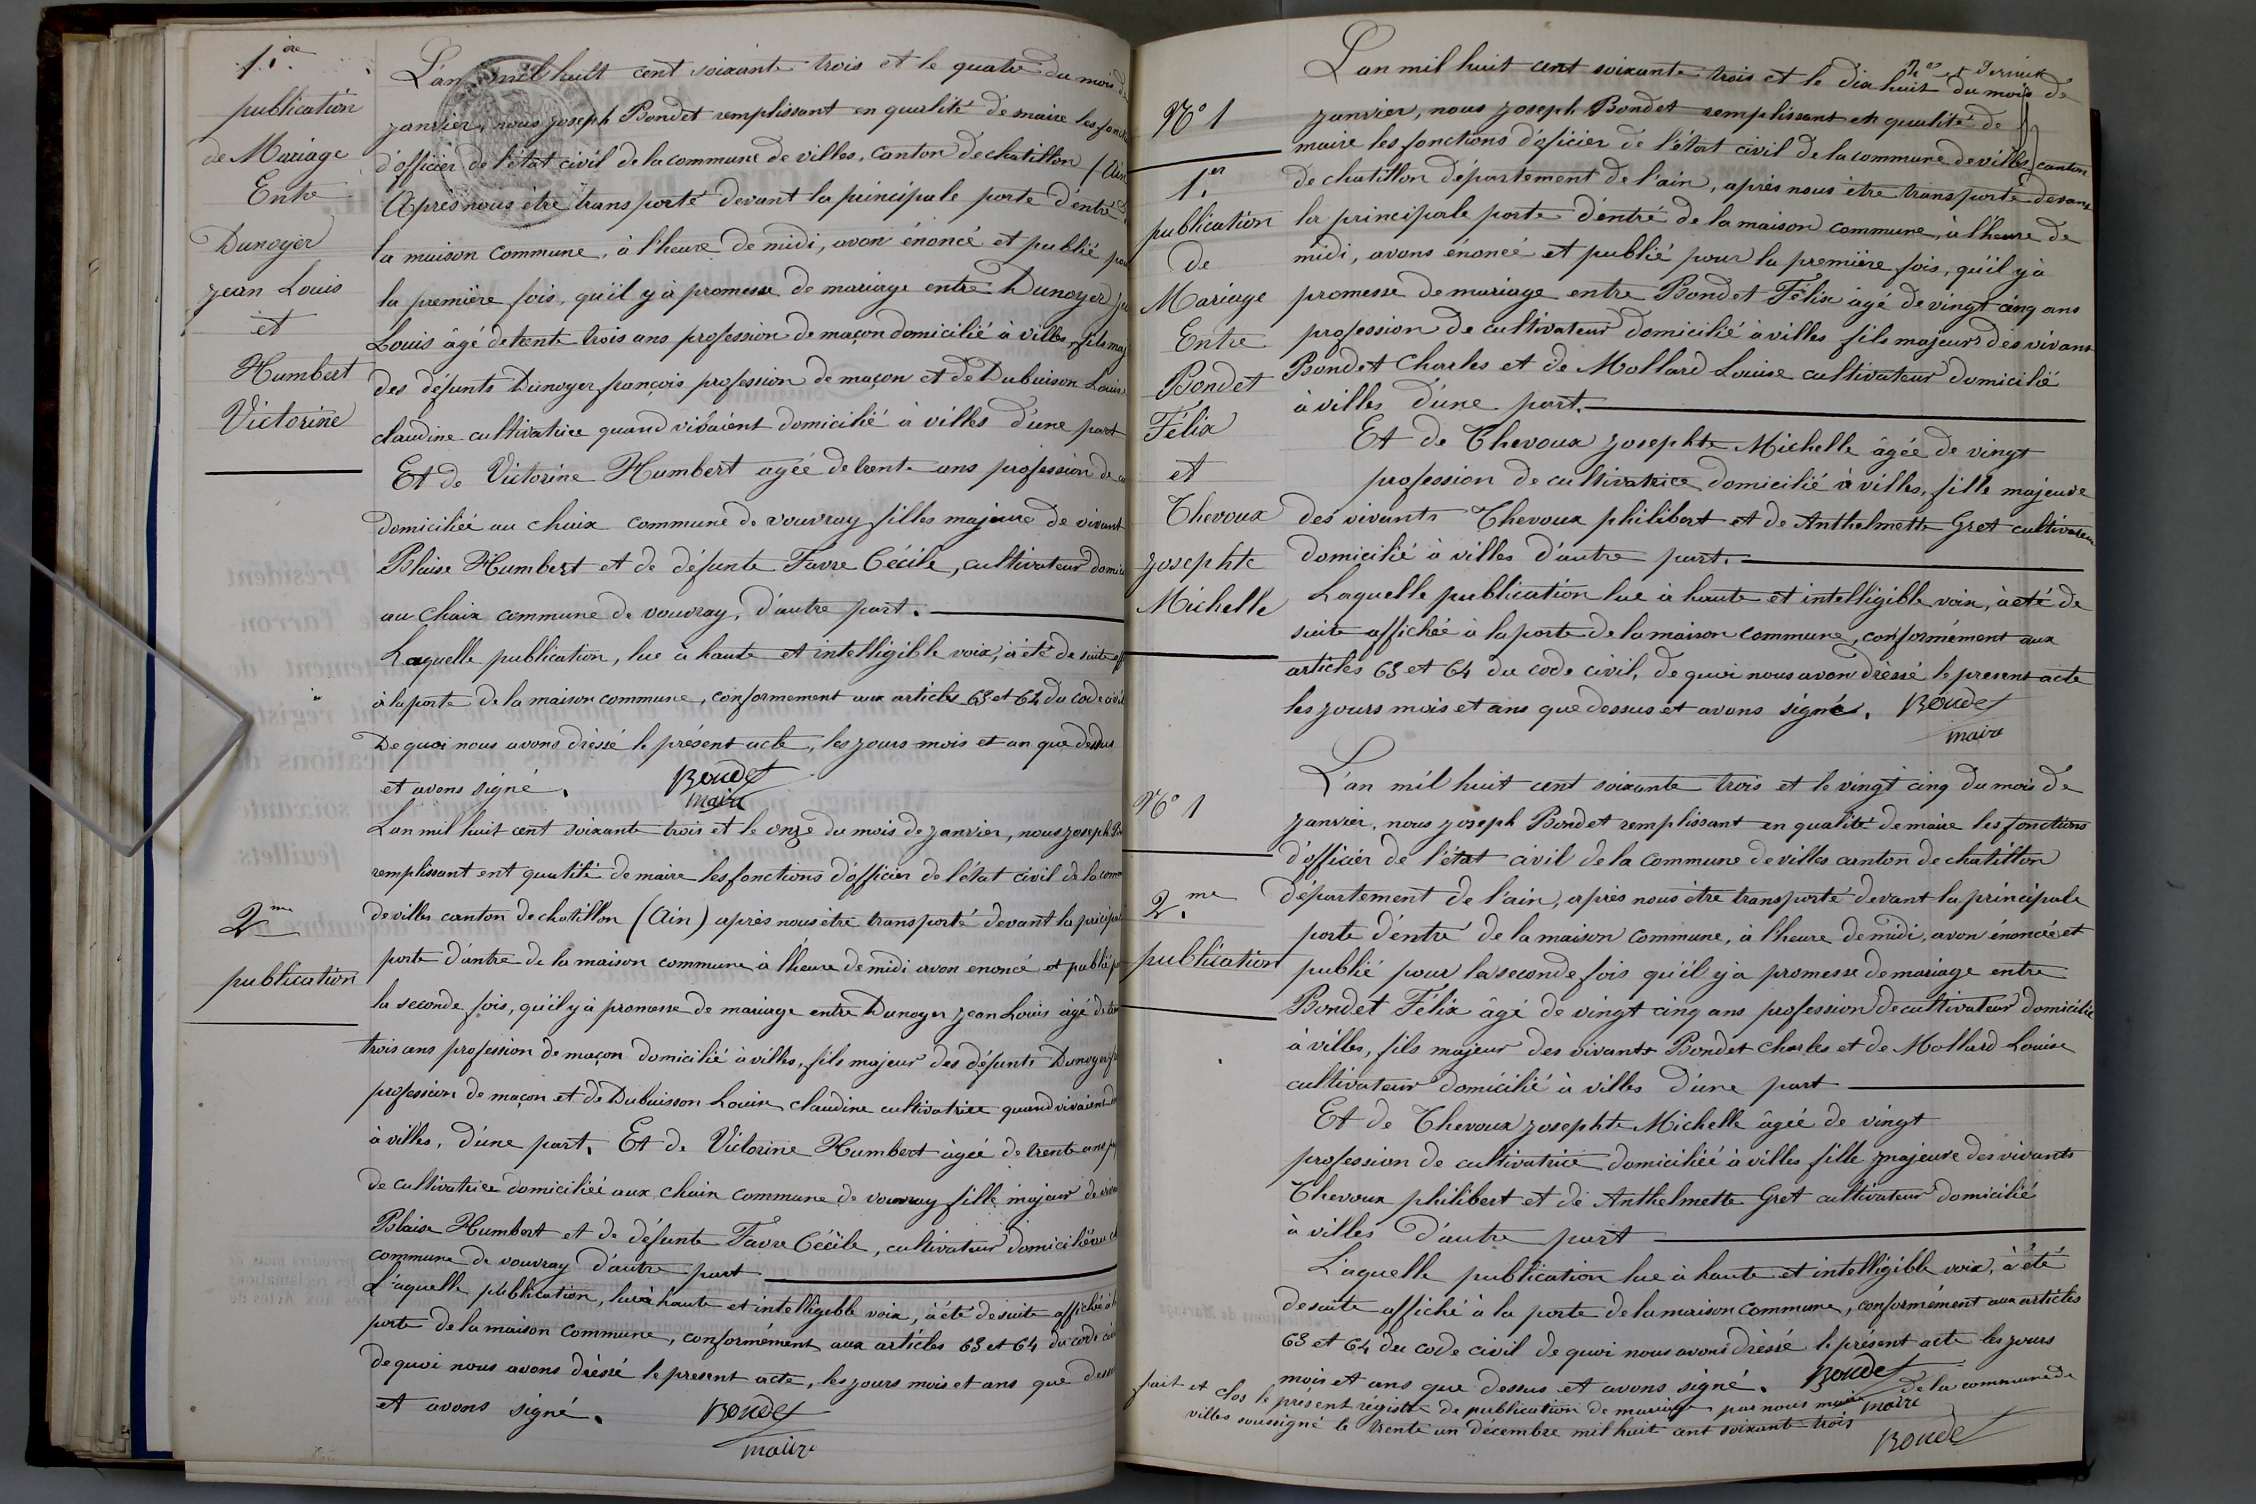 1.ère
publication
de Mariage
Entre
Dunoyer
jean Louis
et
Humbert
Victorine
L'an mil huit cent soixante trois et le quatre du mois de
janvier, nous joseph Bondet remplissant en qualité de maire les fonct
d'officier de l'état civil de la commune de villes, canton de chatillon (Ain
Après nous être transporté devant la principale porte d'entré
la maison commune, à l'heure de midi, avon énoncé et publié pou
la première fois, qu'il y à promesse de mariage entre Dunoyer je
Louis âgé de trente trois ans profession de maçon domicilié à villes, fils maj
des défunts Dunoyer françois profession de maçon et de Dubuison Louise
claudine cultivatrice quand vivaient domicilié à villes d'une part
Et de Victorine Humbert agée de trente ans profession de cu
domiciliée au chaix commune de vouvray filles majeure de vivant
Blaise Humbert et de défunte Favre Cécile, cultivateur domici
au chaix commune de vouvray, d'autre part.
Laquelle publication, lue à haute et intelligible voix, à été de suite aff
à la porte de la maison commune, conformement aux articles 63 et 64 du code civil
De quoi nous avons dréssé le présent acte, les jours mois et an que dessus
et avons signé. Bondet
maire
2me
publication
L'an mil huit cent soixante trois et le onze du mois de janvier, nous joseph Bo
remplissant ent qualité de maire les fonctions d'officier de l'état civil de la comm
de villes canton de chatillon (Ain) après nous être transporté devant la principal
porte d'antre de la maison commune à l'heure de midi avon enoncé et publié po
la seconde fois, qu'il y à promesse de mariage entre Dunoyer jean Louis âgé de tren
trois ans profession de maçon domicilié à villes, fils majeur des défunts Dunoyer fr
profession de maçon et de Dubuisson Louise claudine cultivatrice quand vivaient
à villes, d'une part. Et de Victorine Humbert âgée de trente ans p
de cultivatrice domiciliée aux chaix commune de vouvray fille majeur de viva
Blaise Humbert et de défunte Favre Cécile, cultivateur domicilié au ch
commune de vouvray d'autre part
L'aquelle publication, lue à haute et intelligible voix, à été de suite affiché à l
porte de la maison commune, conformément aux articles 63 et 64 du code civ
de quoi nous avons dréssé le présent acte, les jours mois et ans que dessu
et avons signé. Bondet
maire
N° 1
1.er
publication
de
Mariage
Entre
Bondet
Félix
et
Thevoux
josephte
Michelle
et dernier
L'an mil huit cent soixante trois et le dix huit du mois de
janvier, nous joseph Bondet remplissant en qualité de
maire les fonctions d'oficier de l'état civil de la commune de villes canton
de chatillon département de l'ain, après nous être transporté devant
la principale porte d'entré de la maison commune, à l'heure de
midi, avons énoncé et publié pour la première fois, qu'il y à
promesse de mariage entre Bondet Félix âgé de vingt cinq ans
profession de cultivateur domicilié à villes fils majeur des vivants
Bondet Charles et de Mollard Louise cultivateur domicilié
à villes d'une part.
Et de Thevoux josephte Michelle âgée de vingt
profession de cultivatrice domicilié à villes, fille majeure
des vivants Thevoux philibert et de Anthelmette Gret cultivateur
domicilié à villes d'autre part.
Laquelle publication lue à haute et intelligible voix, à été de
suite affichée à la porte de la maison commune, conformément aux
articles 63 et 64 du code civil, de quoi nous avon dréssé le present acte
les jours mois et ans que dessus et avons signé. Bondet
maire
N° 1
2.me
publication
L'an mil huit cent soixante trois et le vingt cinq du mois de
janvier, nous joseph Bondet remplissant en qualité de maire les fonctions
d'officier de l'état civil de la commune de villes canton de chatillon
département de l'ain, après nous être transporté devant la principale
porte d'entré de la maison commune, à l'heure de midi, avon énoncé et
publié pour la seconde fois qu'il y à promesse de mariage entre
Bondet Félix âgé de vingt cinq ans profession de cultivateur domicilié
à villes, fils majeur des vivants Bondet charles et de Mollard Louise
cultivateur domicilié à villes d'une part
Et de Thevoux josephte Michelle âgée de vingt
profession de cultivatrice domiciliée à villes fille majeure des vivants
Thevoux philibert et de Anthelmette Gret cultivateur domicilié
à villes d'autre part
L'aquelle publication lue à haute et intelligible voix, à été
de suite affiché à la porte de la maison commune, conformément aux articles
63 et 64 du code civil de quoi nous avons dréssé le présent acte les jours
mois et ans que dessus et avons signé. Bondet
maire
fait et clos le présent régistre de publication de mariage par nous maire de la commune de
villes soussigné le trente un décembre mil huit cent soixante trois
Bondet